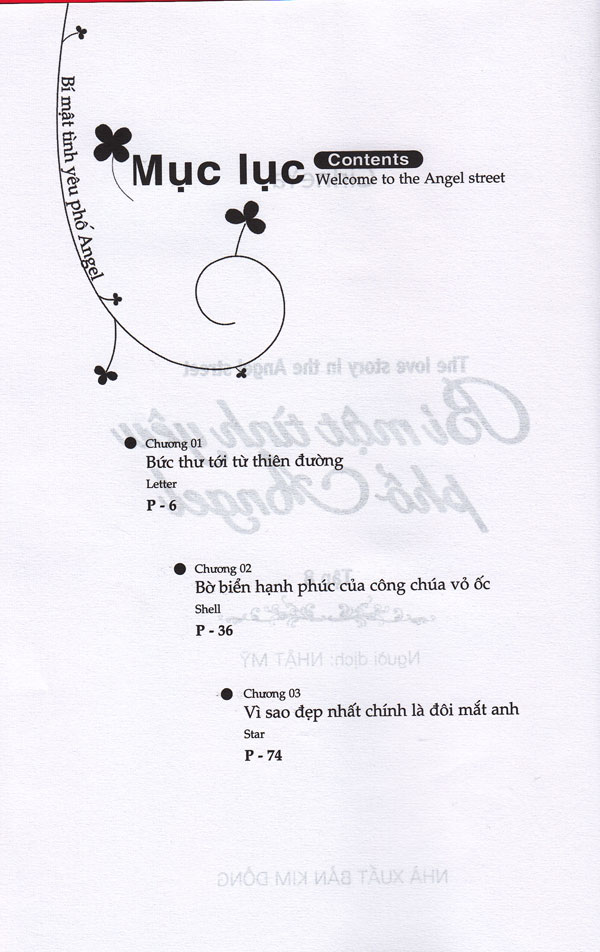 Bí mật tình yêu phố Angel
Mục lục
Contents
Welcome to the Angel street
The love story in the Angel street
Bí mật tình yêu
phố Angel
Chương 01
Bức thư tới từ thiên đường
Letter
P - 6
Chương 02
Bờ biển hạnh phúc của công chúa vỏ ốc
Shell
P - 36
Người dịch: NHẬT MỸ
Chương 03
Vì sao đẹp nhất chính là đôi mắt anh
Star
P - 74
NHÀ XUẤT BẢN KIM ĐỒNG